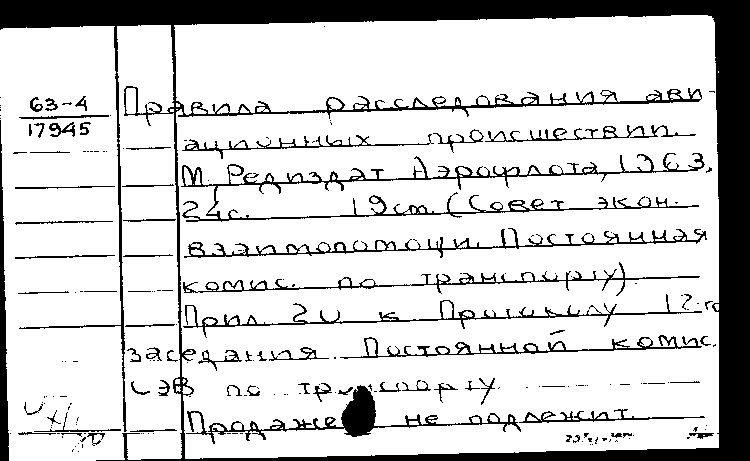 63-4
17945
Правила расследования ави-
ационных происшествий.
М, Редиздат Аэрофлота, 1963,
24с. 19см. (Совет экон.
взаимопомощи. Постоянная
комис. по транспорту)
Прил. 20 к Протоколу 12-го
заседания Постоянной комис.
СЭВ по транспорту.
Продаже не подлежит.